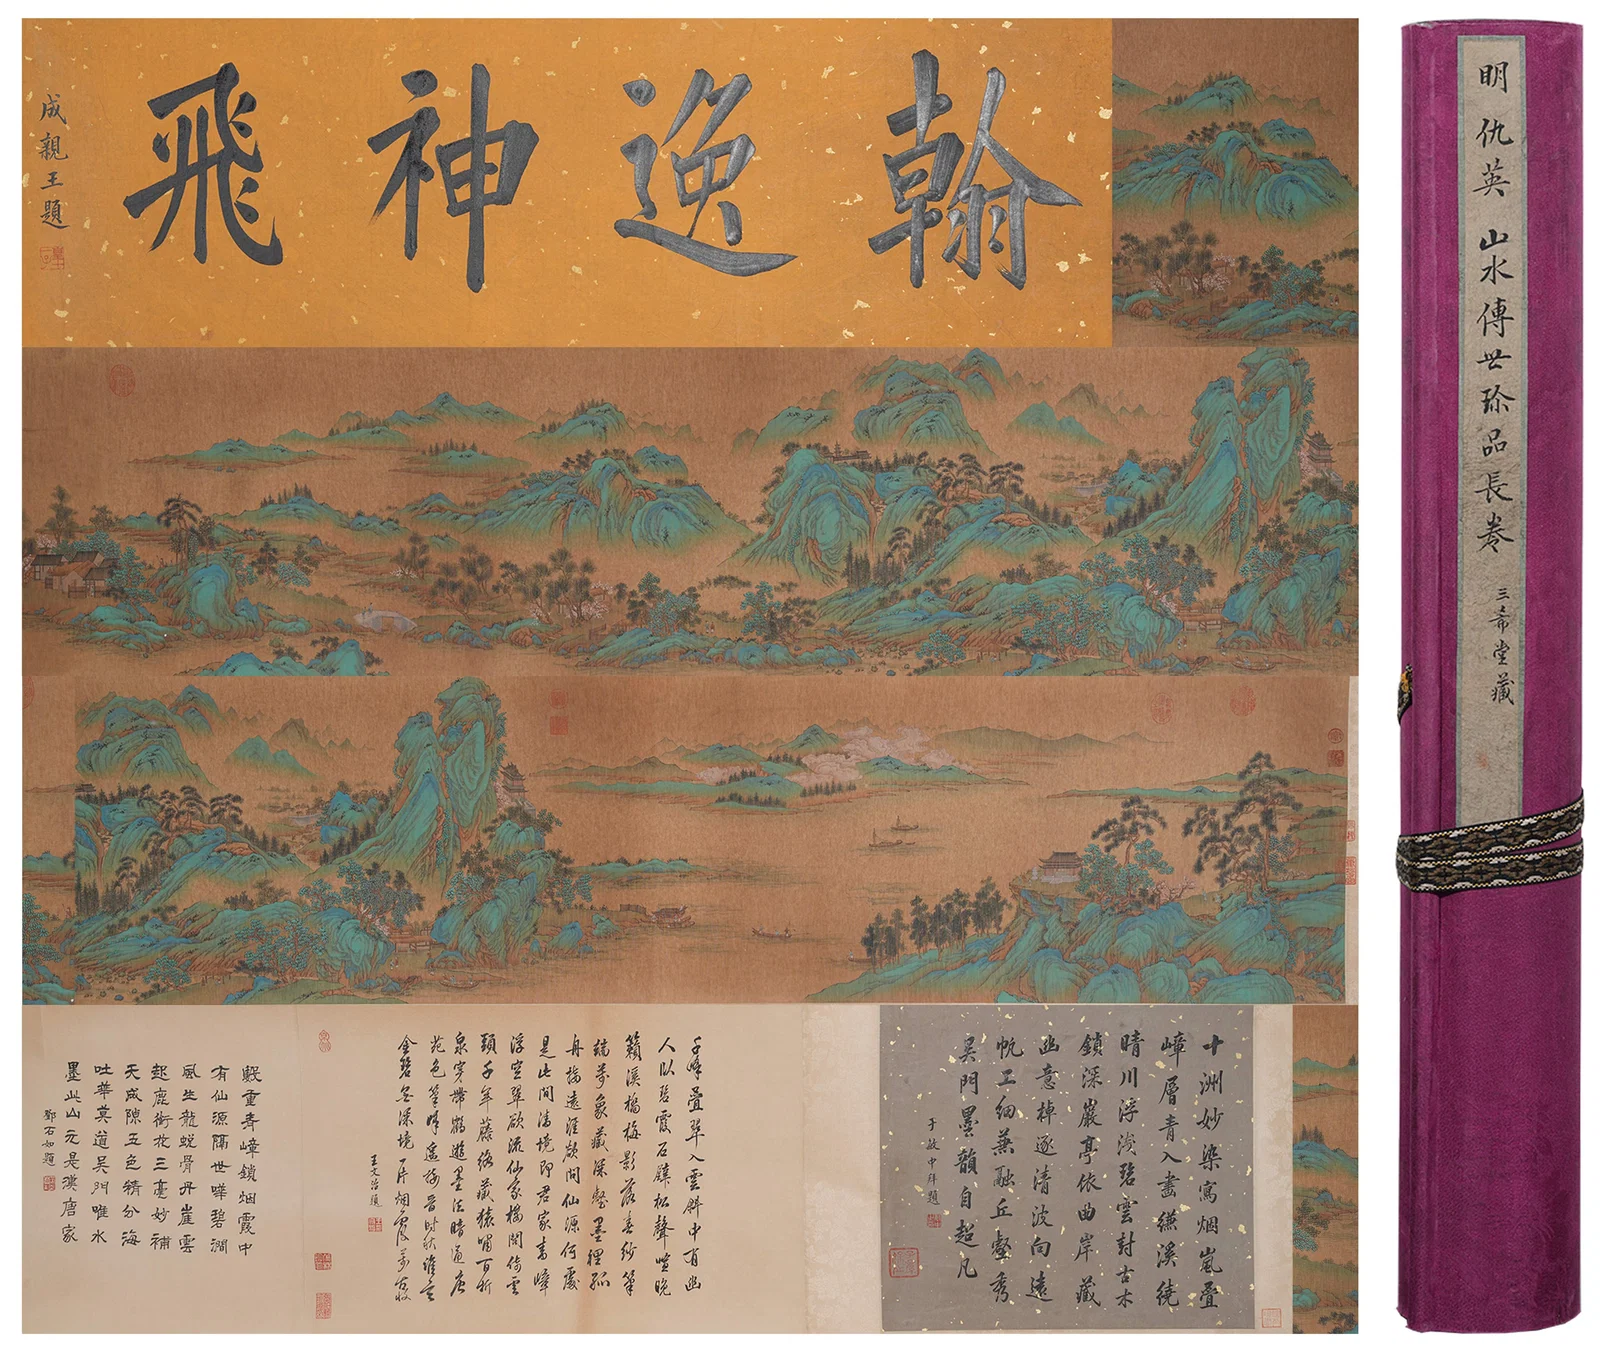 翰逸神飛
成親王題
明 仇英 山水傳世珍品長卷
三希堂藏
十洲妙染寫烟嵐疊
嶂層青入畫縑溪繞
晴川浮淺碧雲封古木
鎖深巖亭依曲岸藏
幽意棹逐清波向遠
帆工細兼融丘壑秀
吳門墨韻自超凡
于敏中拜題
千峰疊翠入雲斜中有幽
人以碧霞石磴松聲喧晚
籟溪橋梅影落春紗筆
端萬象藏深壑墨裡孤
舟擒遠涯欲問仙源何處
是此間清境即君家青嶂
浮空翠欲流仙家樓閣倚雲
頭千年藤絡藏猿嘯百折
泉穿帶鶴遊墨法暗通唐
苑色筆時遙接晉時秋誰言
金碧無深境一片烟霞萬古收
王文治題
數重青嶂鎖烟霞中
有仙源隔世嘩碧澗
風生龍蛻骨丹崖雲
起鹿銜花三毫妙補
天成隙五色精分海
吐華莫道吳門唯水
墨此山元是漢唐家
鄧石如題